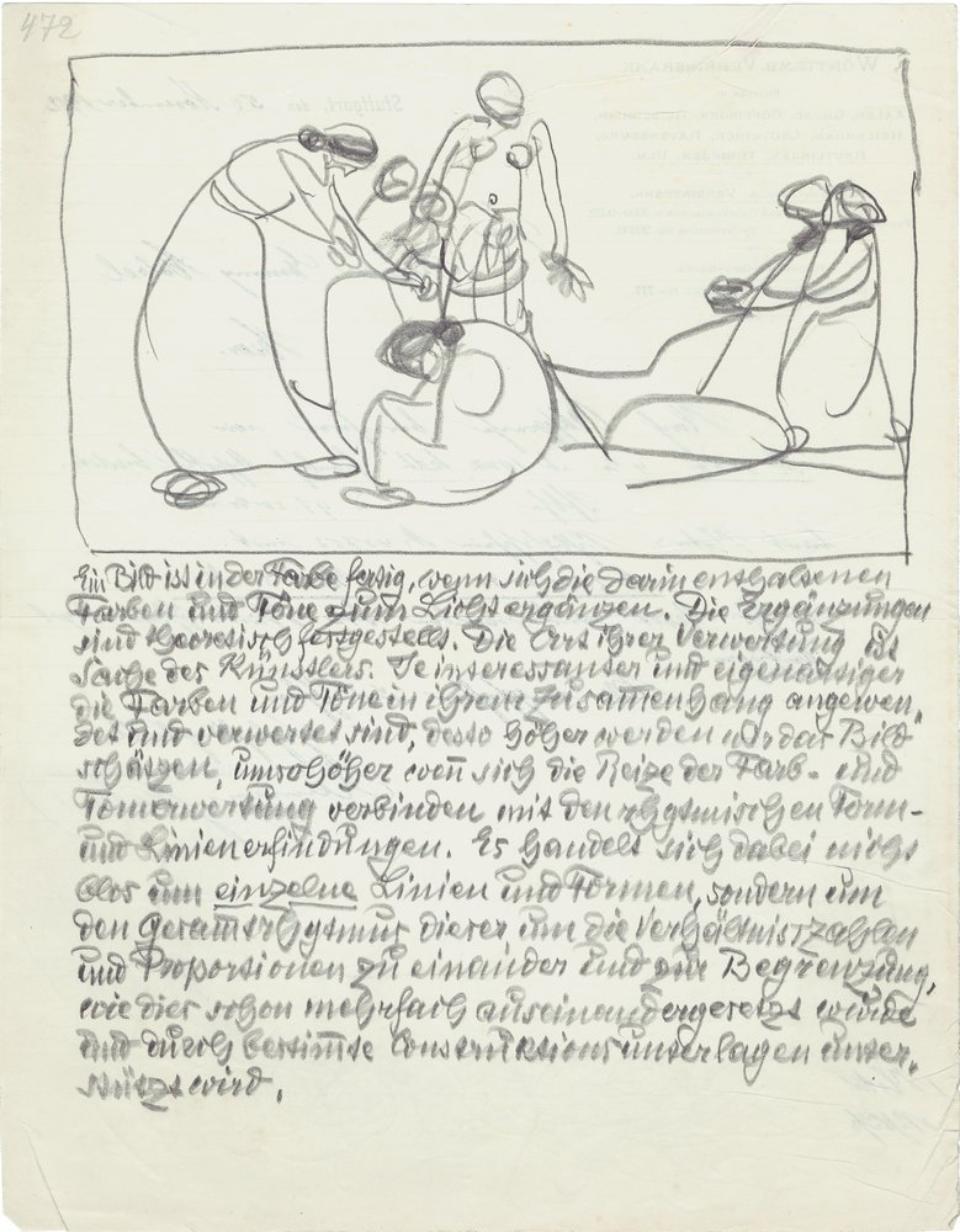 472
Ein Bild ist in der Farbe fertig, wenn sich die darin enthaltenen
Farben und Töne zum Licht ergänzen. Die Ergänzungen
sind theoretisch festgestellt. Die Art ihrer Verwertung ist
Sache des Künstlers. Je interessanter und eigenartiger
die Farben und Töne in ihrem Zusam̅enhang angewen„
det und verwertet sind, desto höher werden wir das Bild
schätzen, umsohöher wen̅ sich die Reize der Farb- und
Tonverwertung verbinden mit den rhytmischen Form-
und Linienerfindungen. Es handelt sich dabei nicht
blos um einzelne Linien und Formen, sondern um
den Gesam̅trhytmus dieser um die Verhältnisszahlen
und Proportionen zu einander und zur Begrenzung,
wie dies schon mehrfach auseinandergesetzt wurde
und durch bestim̅te Construktionsunterlagen unter„
stützt wird.
WÜRTTEMB. VEREINSBANK
Stuttgart, den